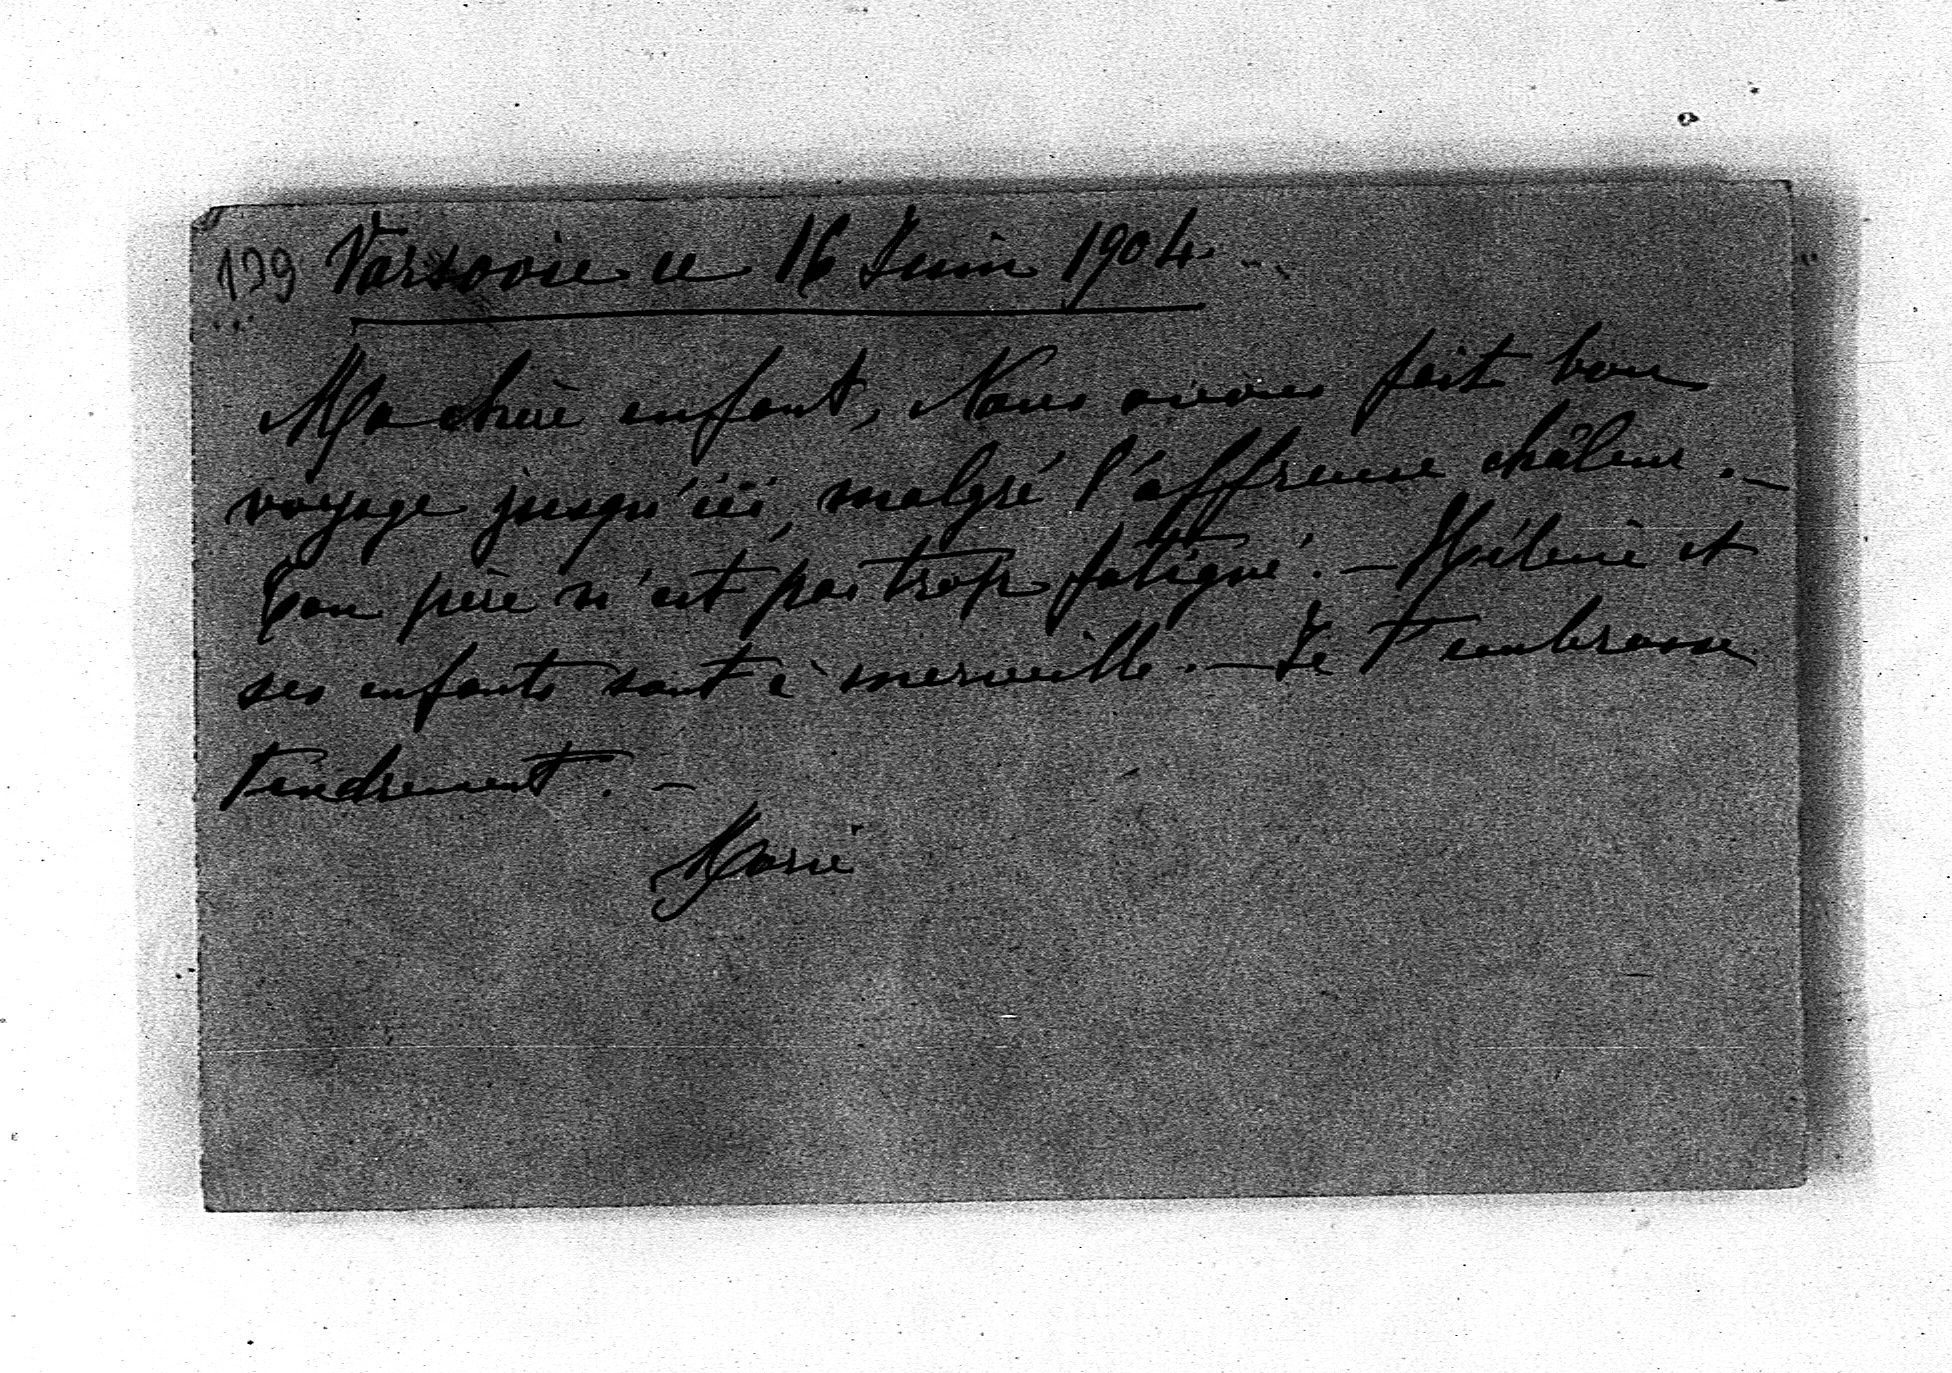 139 Varsovie le 16 Juin 1904.
Ma chère enfant, Nous avons fait bon
voyage jusqu'ici, malgré l'affreuse châleur. —
Ton père n'est pas trop fatigué. — Hélène et
ses enfants sont à merveille. — Je t'embrasse
tendrement. —
Marie